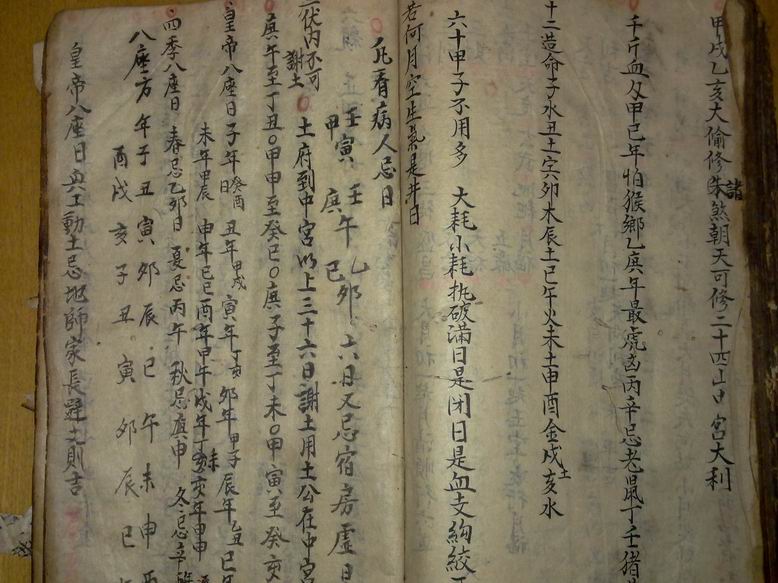 甲戌乙亥大偷修諸煞朝天可修二十四山口宮大利
千斤血刃甲已年怕猴鄉乙庚年最虎凶丙辛忌老鼠丁壬猪
十二造命子水丑土寅卯木辰土巳午火未土申酉金戌土亥水
六十甲子不用多 大耗小耗執破滿日是閉日是血支絢絞
若何月空生氣是井日
凡看病人忌日
壬寅 壬午 乙卯 六日又忌宿房虛日
甲寅 庚 巳
土府到中宮以上三十六日謝土用土公在中宮
伏內不可謝土
庚午至丁丑○甲申至癸巳○庚子至丁未○甲寅至癸亥
皇帝八座日子年癸酉日 丑年甲戌 寅年丁亥 卯年甲子 辰年乙丑 巳年
未年甲辰 申年巳巳 酉年甲午 戌年丁未 亥年甲申
四季八座日 春忌乙卯日 夏忌丙午 秋忌庚申 冬忌辛
八座方 年子丑寅卯辰巳午未申酉
酉戌亥子丑寅卯辰巳
皇帝八座日與工動土忌地師家長避之則吉